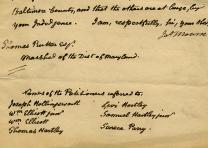 Baltimore County, and that the others are at large, by
your Indulgence. I am, respectfully, Sir, your Obt
Jas Monroe
Thomas Rutter Esqr.
Marshall of the Dist of Maryland.
Names of the Petitioners referred to:
Joseph Hollingsworth
Levi Hartley
Wm Elliott Junr
Samuel Hartley Junr
Wm Elliott
Thomas Hartley
Parry